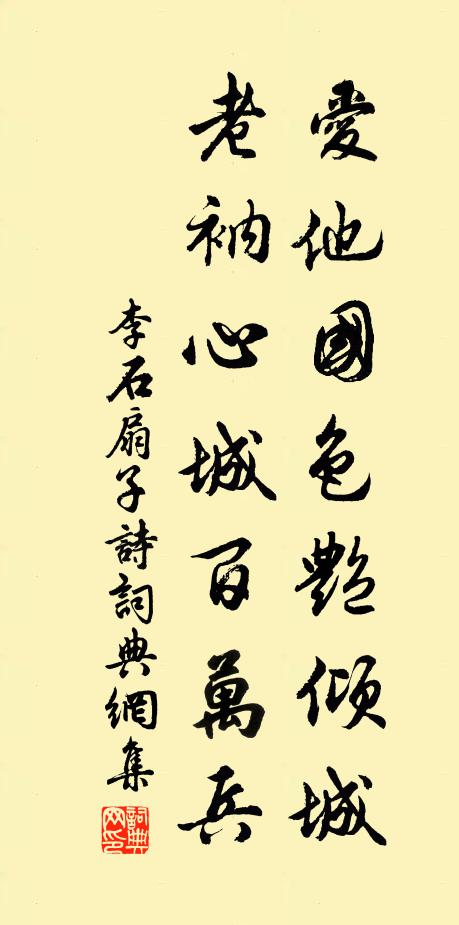 愛他國色艷傾城
老衲心城百萬兵
李石扇子詩詞典網集
詞典網印